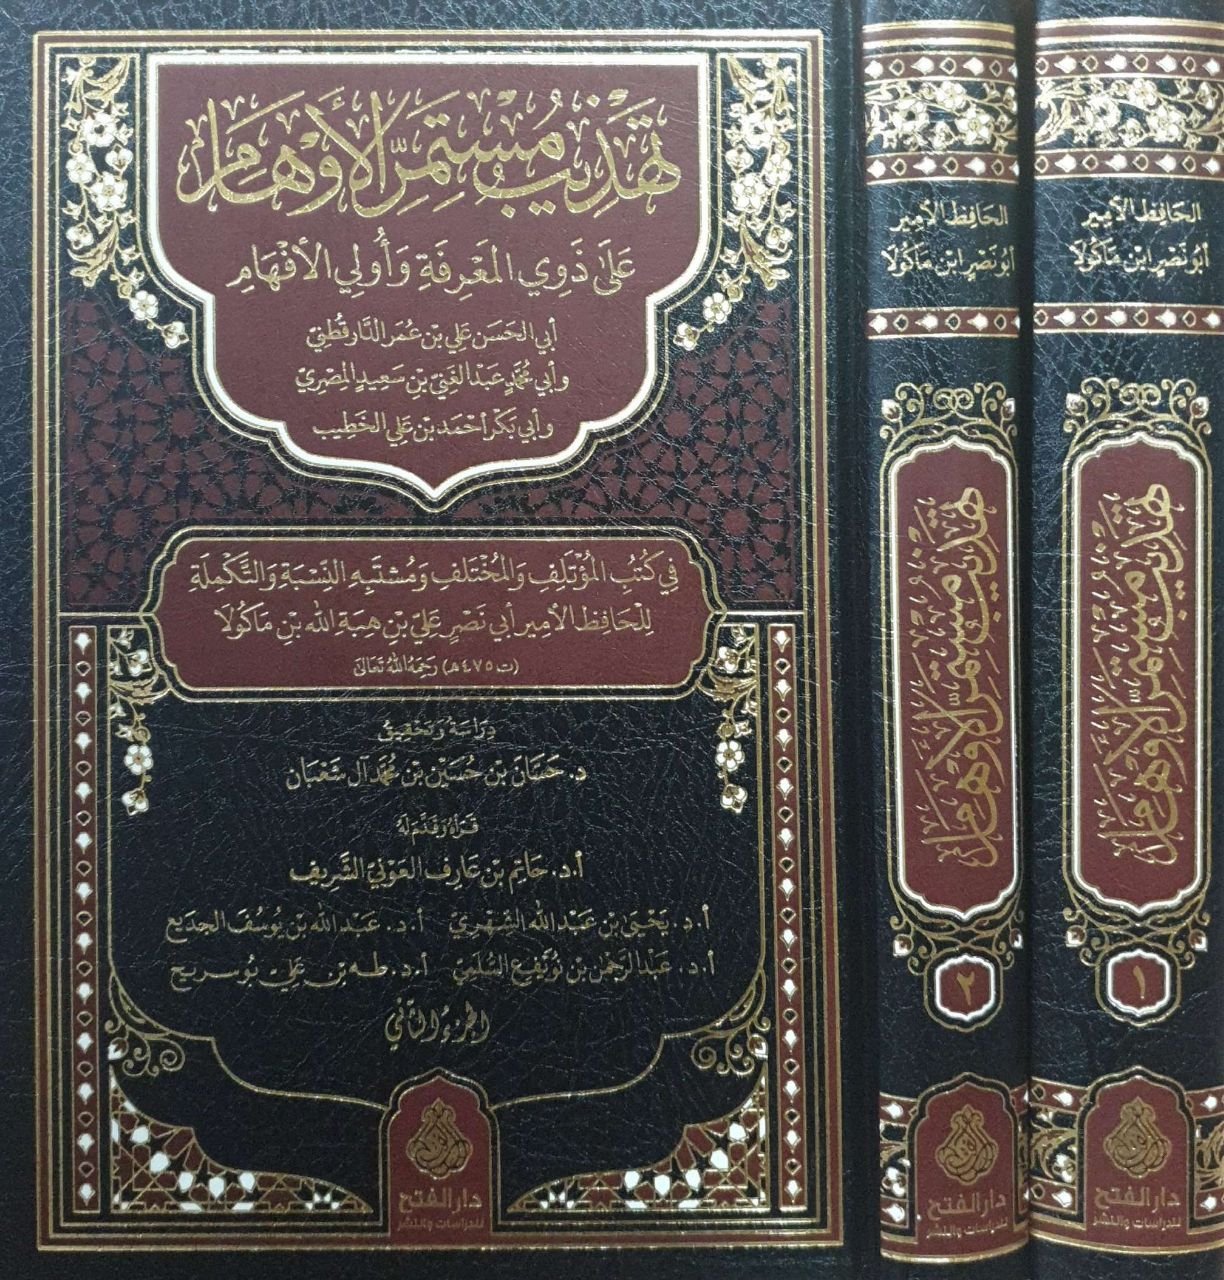 تهذيب مستمر الأوهام
على ذوي المعرفة وأولي الأفهام
أبي الحسن علي بن عمر الدارقطني
وأبي محمد عبد الغني بن سعيد المصري
وأبي بكر أحمد بن علي الخطيب
في كتب المؤتلف والمختلف ومشتبه النسبة والتكملة
للحافظ الأمير أبي نصر علي بن هبة الله بن ماكولا
(ت ٤٧٥هـ) رحمه الله تعالى
دراسة وتحقيق
د. حسان بن حسين بن محمد آل شعبان
قرأه وقدم له
أ.د. حاتم بن عارف العوني الشريف
أ.د. يحيى بن عبد الله الشهري أ.د. عبد الله بن يوسف الجديع
أ.د. عبد الرحمن بن نويفع السلمي أ.د. طه بن علي بوسريح
الجزء الثاني
دار الفتح
للدراسات والنشر
الحافظ الأمير
أبو نصر ابن ماكولا
تهذيب مستمر الأوهام
٢
دار الفتح
للدراسات والنشر
الحافظ الأمير
أبو نصر ابن ماكولا
تهذيب مستمر الأوهام
١
دار الفتح
للدراسات والنشر